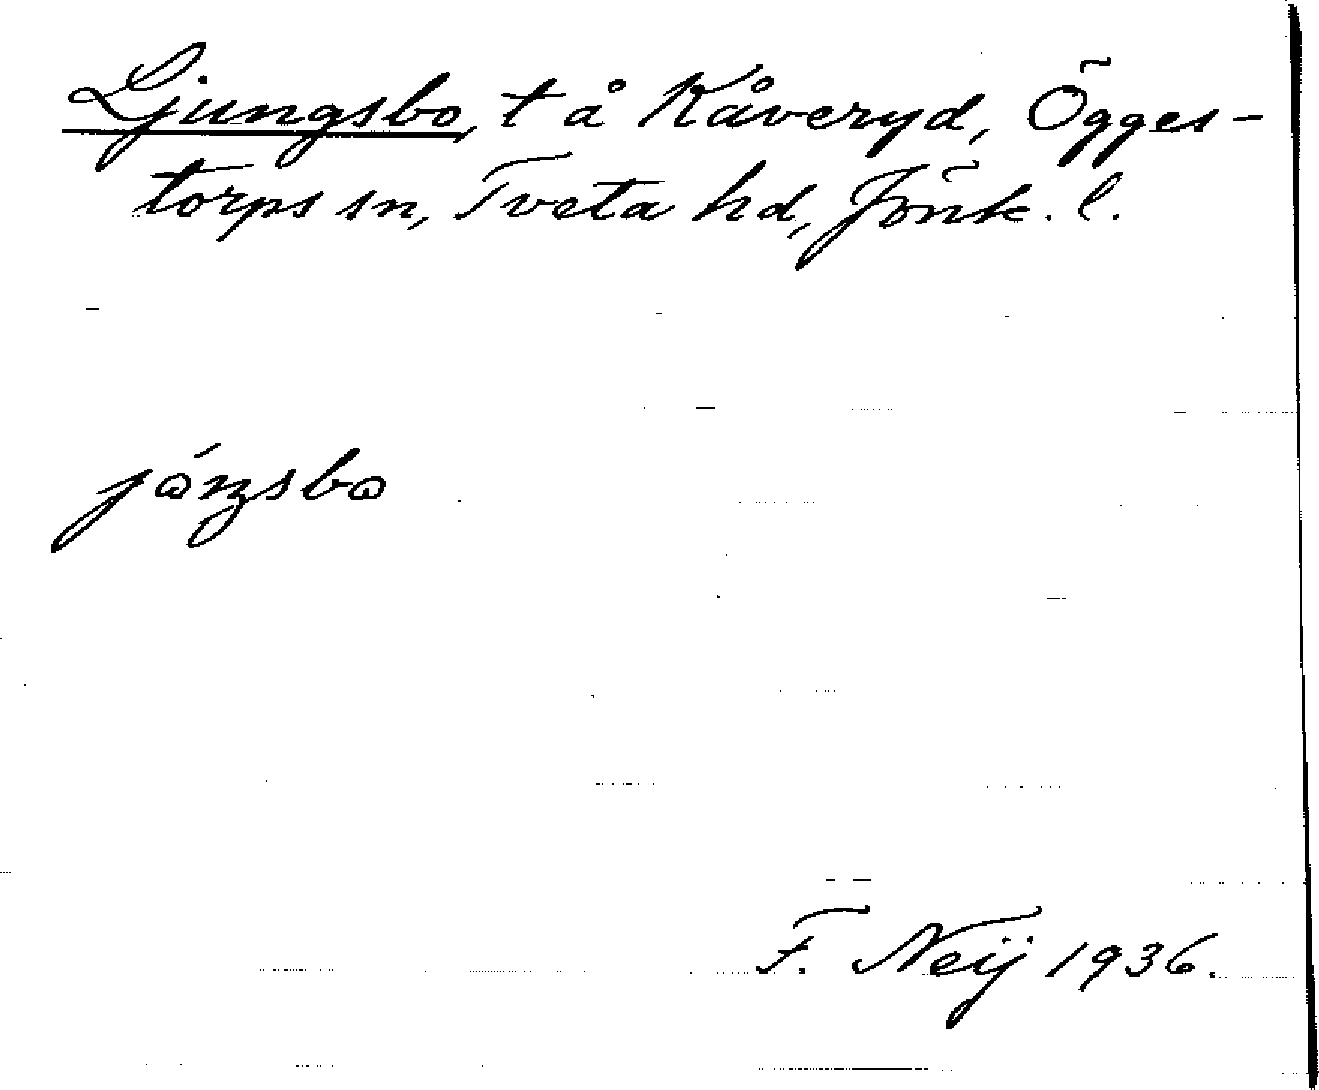 Ljungsbo, t å Kåveryd, Ögges-
torps sn, Tveta hd, Jönk. l.
jónsbo
F. Neij 1936.